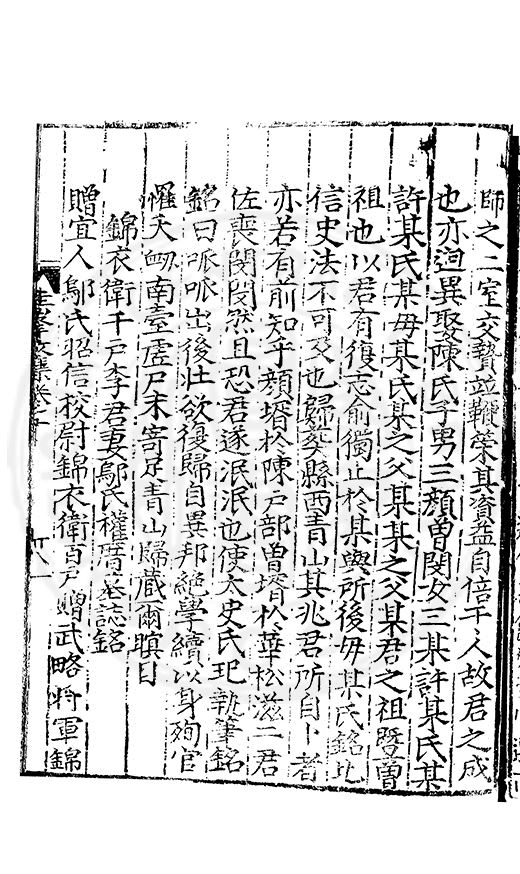 師之二室交贄竝鞭榮其資益自倍于人故君之成
也亦迥異娶陳氏子男三顏曾閔女三某許某氏某
許某氏某母某氏某之父某某之父某君之祖暨曾
祖也以君有復志俞獨止於某與所後毋某氏銘比
信史法不可及也歸葬縣西青山其兆君所自卜者
亦若有前知乎顏壻於陳戶部曾壻於華松滋二君
佐喪閔閔然且恐君遂泯泯也使太史氏玘執筆銘
銘曰呱呱出後壯欲復歸自異邦絕學續以身殉官
懼天刼南臺虛尸未寄足青山歸藏爾瞑目
錦衣衛千戶李君妻鄔氏權厝墓誌銘
贈宜人鄔氏昭信校尉錦衣衛百戶贈武略將軍錦